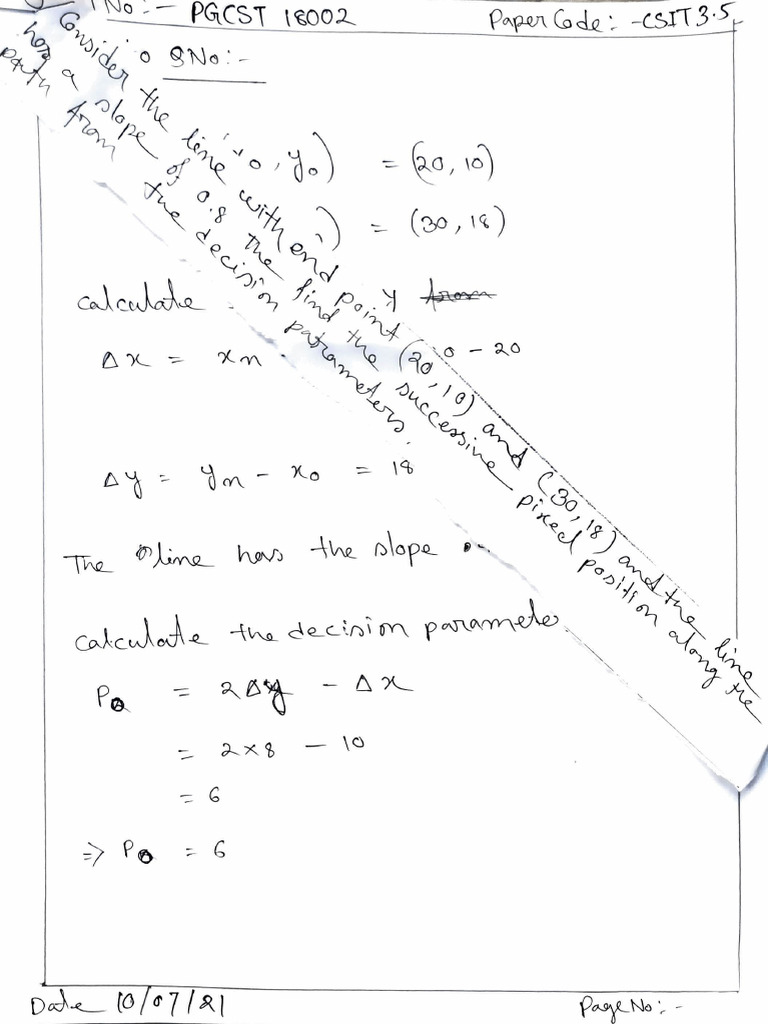 No:- PGCST 18002
Paper Code:-CSIT3.5
QNo:-
Consider the line with end point (20,10) and (30,18) and the line
has a slope of 0.8 the find the successive pixed position along the
path from the decision patrameters.
0, y0) = (20, 10)
) = (30, 18)
calculate
Δx = xn
0 - 20
Δy = yn - x0 = 18
The line has the slope
calculate the decision paramete
P0 = 2Δy - Δx
= 2×8 - 10
= 6
⇒ P0 = 6
Date 10/07/21
Page No:-